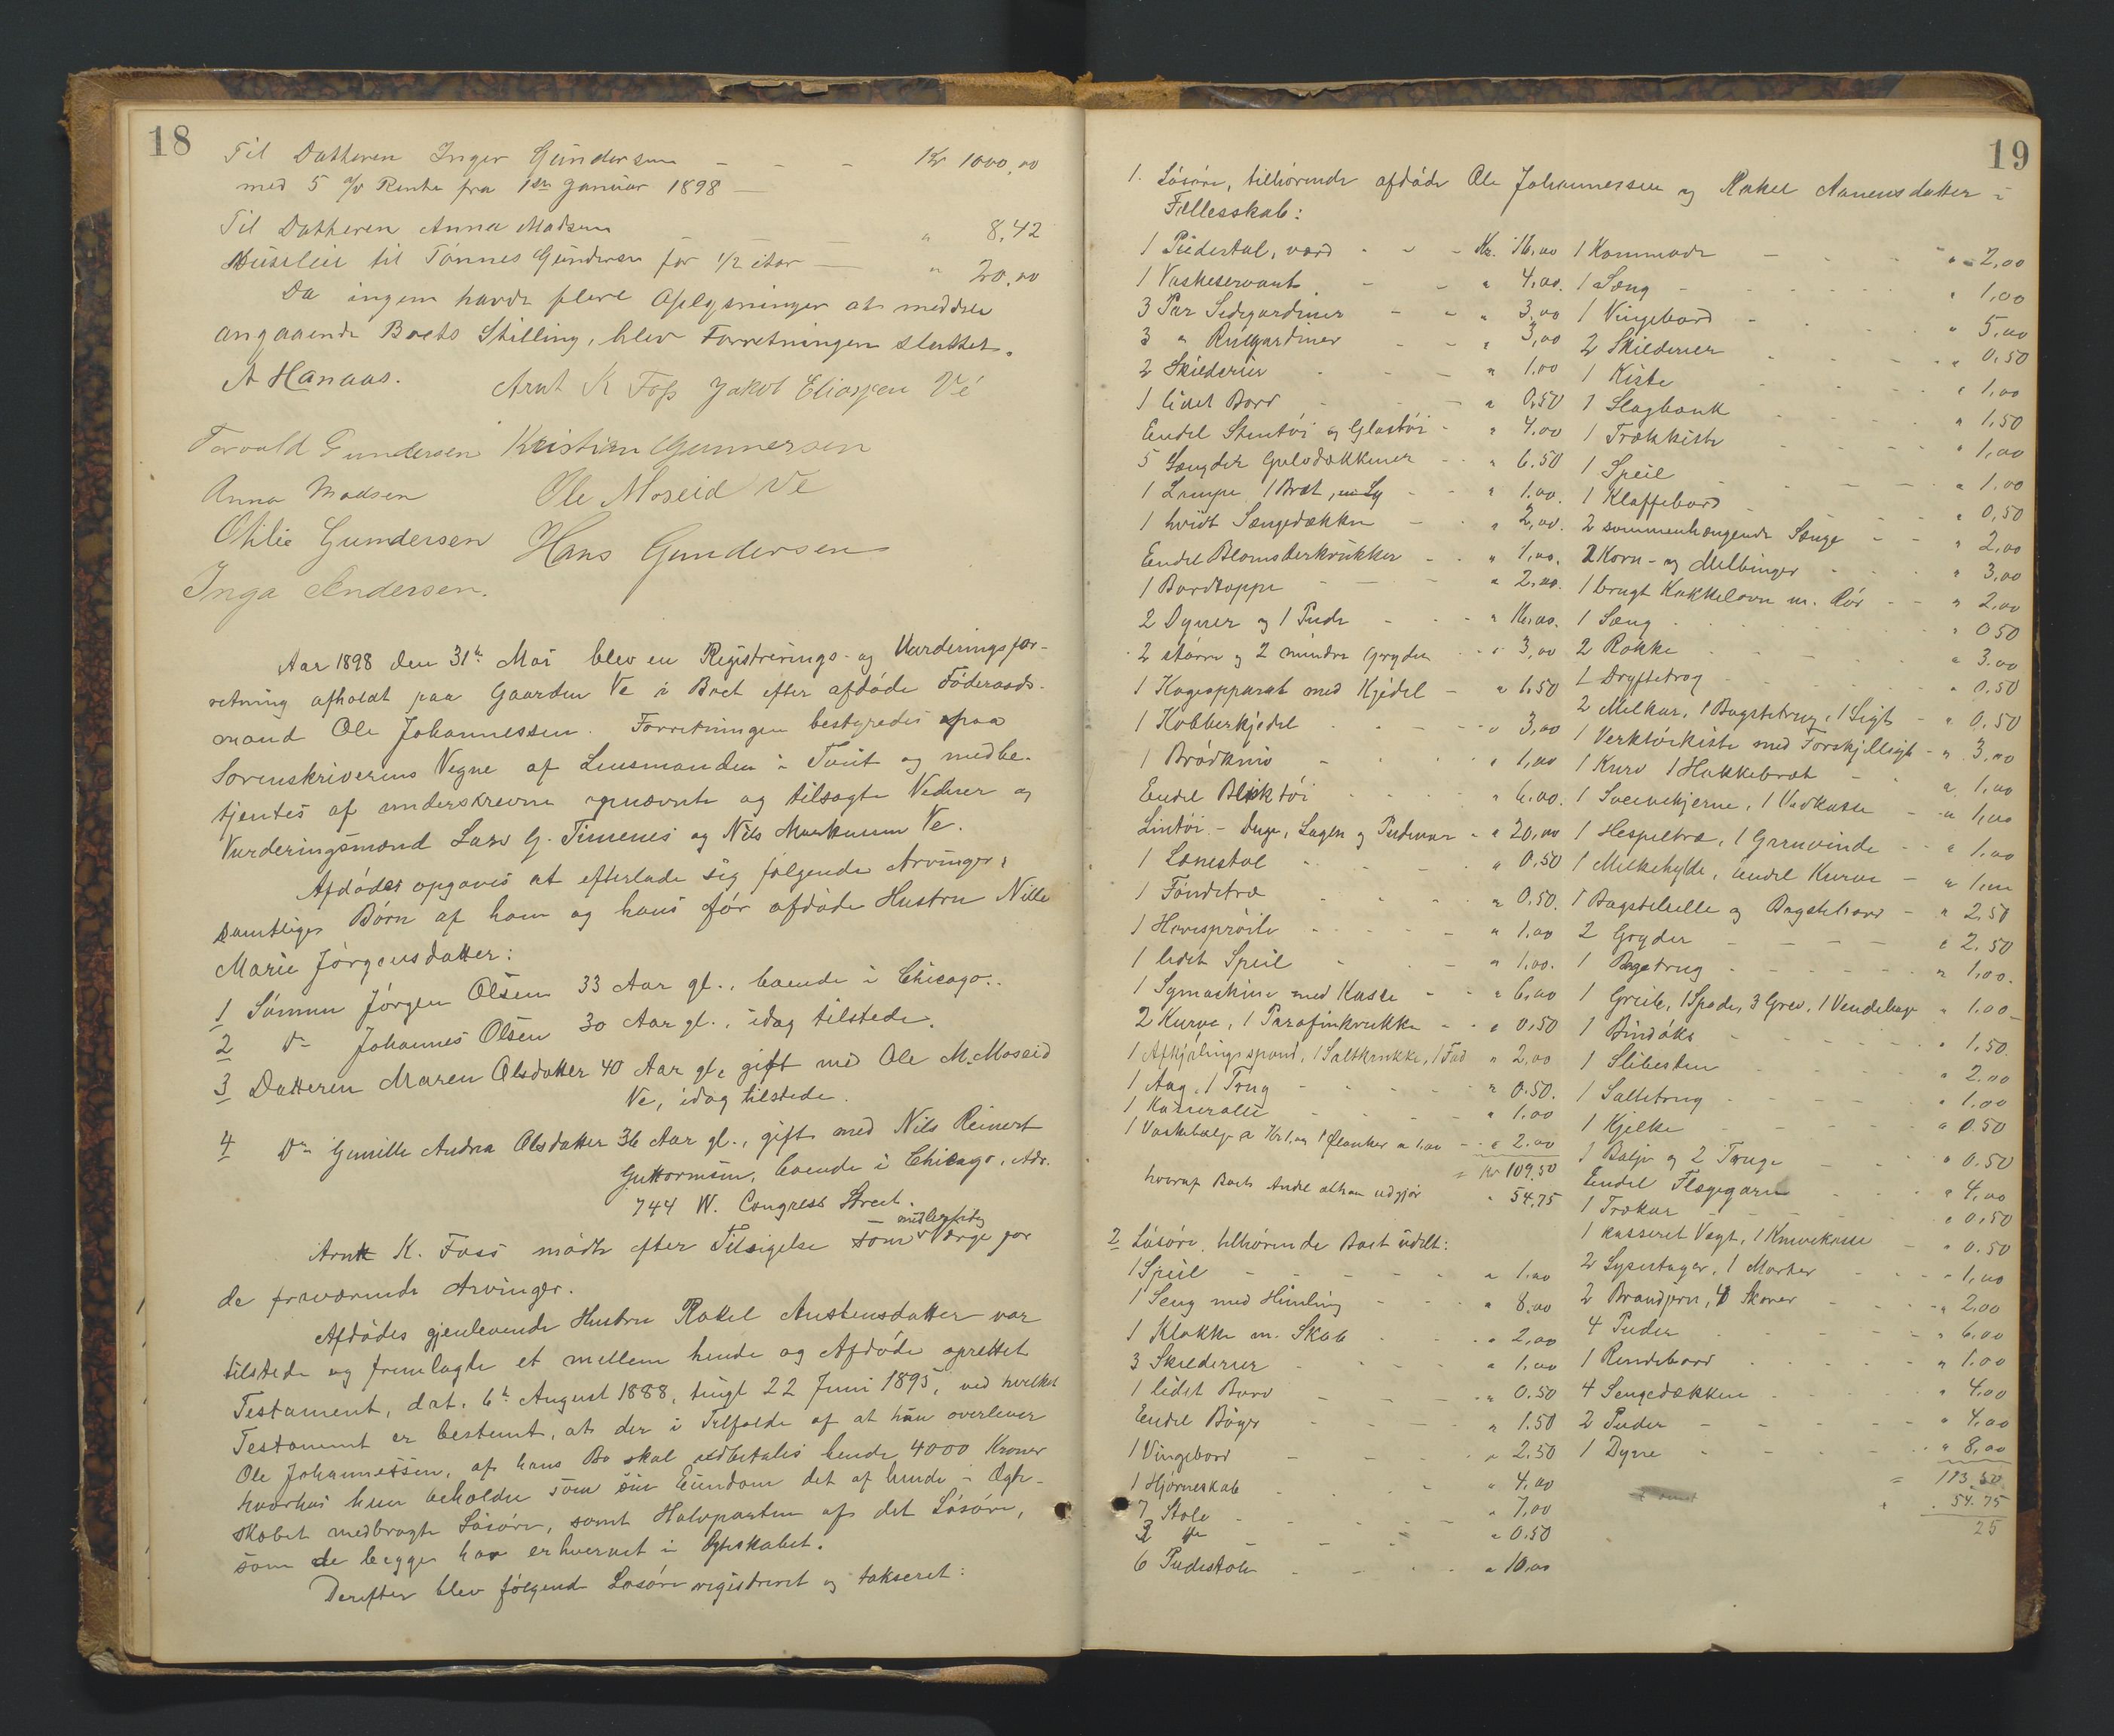 18
Til Datteren Inger Gundersen - - - Kr 1000,00
med 5 % Rente fra 1ste Januar 1898 -
Til Datteren Anna Madsen " 8,42
Husleie til Tønnes Gundersen for 1/2 Aar - " 20,00
Da ingen havde flere Oplysninger at meddele
angaaende Boets Stilling, blev Forretningen sluttet.
A Hanaas. Arnt K Foss Jakob Eliassen Ve
Torvald Gundersen Kristian Gunnersen
Anna Madsen Ole Moseid Ve
Otilie Gundersen Hans Gundersen
Inga Andersen.
Aar 1898 den 31te Mai blev en Registrerings- og Vurderingsfor-
retning afholdt paa Gaarden Ve i Boet efter afdøde Føderaads-
mand Ole Johannessen. Forretningen bestyredes paa
Sorenskriverens Vegne af Lensmanden i Tveit og medbe-
tjentes af underskrevne opnævnte og tilsagte Vidner og
Vurderingsmænd Lars G. Timenes og Nils Markussen Ve.
Afdødes opgaves at efterlade sig følgende Arvinger,
samtlige Børn af ham og hans før afdøde Hustru Nille
Marie Jørgensdatter:
1 Sønnen Jørgen Olsen 33 Aar gl., boende i Chicago..
2 Do Johannes Olsen 30 Aar gl., idag tilstede.
3 Datteren Maren Olsdatter 40 Aar gl., gift med Ole M. Moseid
Ve, idag tilstede.
4 Do Gunille Andrea Olsdatter 36 Aar gl., gift med Nils Reinert
Guttormsen, boende i Chicago, Adr.
744 W. Congress Street.
midlertidig
Arnt K. Foss mødte efter Tilsigelse som Værge for
de fraværende Arvinger.
Afdødes gjenlevende Hustru Rakel Austensdatter var
tilstede og fremlagte et mellem hende og Afdøde oprettet
Testament, dat. 6te August 1888, tingl 22 Juni 1895, ved hvilket
Testament er bestemt, at der i Tilfælde af at hun overlever
Ole Johannessen, af hans Bo skal udbetales hende 4000 Kroner
hvorhos hun beholder som sin Eiendom det af hende i Ægte-
skabet medbragte Løsøre, samt Halvparten af det Løsøre,
som de begge har erhvervet i Ægteskabet.
Derefter blev følgende Løsøre registreret og takseret:
19
1. Løsøre, tilhørende afdøde Ole Johannessen og Rakel Aanensdatter i
Fællesskab:
1 Piedestal, værd - - - Kr. 16,00
1 Vaskeservant - - " 4,00.
3 Par Sidegardiner - - " 3,00
3 " Rulgardiner - - " 3,00
2 Skilderier - - " 1.00
1 lidet Bord - " 0,50
Endel Stentøi og Glastøi - " 4,00
5 Længder Gulvdækkener - - " 6.50
1 Lampe 1 Bræt - - " 1,00.
1 hvidt Sængedækken - - " 2,00.
Endel Blomsterkrukker - - " 1,00.
1 Bordtoppe - - - " 2,00.
2 Dyner og 1 Pude - - - " 16,00.
2 større og 2 mindre Gryder - - " 3,00
1 Kogeapparat med Kjedel - " 1,50
1 Kobberkjedel - - - " 3,00
1 Brødkniv - - - " 1,00
Endel Bliktøi - - - " 6,00.
Lintøi - Duge, Lagen og Pudevar - " 20,00
1 Lænestol - - - " 0.50
1 Tøndetræ - - - " 0.50.
1 Havesprøite - - - " 1,00
1 lidet Speil - - - " 1,00.
1 Symaskine med Kasse - - " 6,00
2 Kurve, 1 Parafinkrukke - - " 0,50
1 Afkjølingsspand, 1 Saltkrukke, 1 Fad " 2,00
1 Aag, 1 Trug - - - " 0.50.
1 Kasserolle - - - " 1.00
1 Vaskebalje a Kr 1,00 1 Planker a 1.00 - - " 2,00
= Kr 109,50
hvoraf Boets Andel altsaa udgjør " 54,75
2 Løsøre, tilhørende Boet udelt:
1 Speil - - - " 1,00
1 Seng med Himling - - - " 8,00
1 Klokke m. Skab - - " 2,00
3 Skilderier - - - " 1,00
1 lidet Bord - - - " 0.50
Endel Bøger - - - " 1.50
1 Vingebord - - - " 2.50
1 Hjørneskab - - - " 4,00
7 Stole - - - " 7,00
3 do - - - " 0.50
6 Pudestole - - - " 10,00
1 Kommode - - - " 2,00
1 Sæng - - - " 1,00
1 Vingebord - - - " 5,00
2 Skilderier - - - " 0,50
1 Kiste - - - " 1,00
1 Slagbænk - - - " 1,50
1 Trækkiste - - - " 1,00
1 Speil - - - " 1.00
1 Klaffebord - - - " 0,50
2 sammenhængende Sænge - - " 2,00
2 Korn- og Melbinger - - - " 3,00
1 brugt Kakkelovn m. Rør - - " 2,00
1 Sæng - - - " 0.50
2 Rokke - - - " 3.00
1 Dryftetrog - - - " 0.50
2 Melkar, 1 Bagstetrug, 1 Sigt - " 0,50
1 Verktøikiste med Forskjelligt - " 3,00
1 Kurv 1 Hakkebræt - - " 1,00
1 Sveivekjerne, 1 Vedkasse - " 1,00
1 Hespeltræ, 1 Garnvinde - - " 1,00
1 Melkehylde, endel Kurve - " 1,00
1 Bagstehelle og Bagstebord - " 2,50
2 Gryder - - - " 2,50
1 Bagetrug - - - " 1,00.
1 Greib, 1 Spade, 3 Grev, 1 " 1.00
1 Bindøks - - - " 1,50.
1 Slibesten - - - " 2.00
1 Saltetrug - - - " 1.00
1 Kjelke - - - " 0.50
1 Balje og 2 Truge - - " 0.50
Endel Flægegarn - - - " 4,00
1 Trækar - - - " 0,50
1 kasseret Vægt, 1 Knivekasse - " 0.50
2 Lysestager, 1 Morter - - - " 1,00
2 Brandjern, 4 Skover - - - " 2,00
4 Puder - - - " 6,00
1 Rundebord - - - " 1.00
4 Sengedækken - - - " 4.00
2 Puder - - - " 4,00
1 Dyne - - - " 8,00
= 113,50
54.75
25